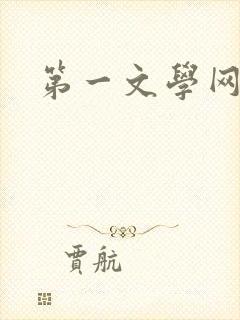 第一文學网
賈航